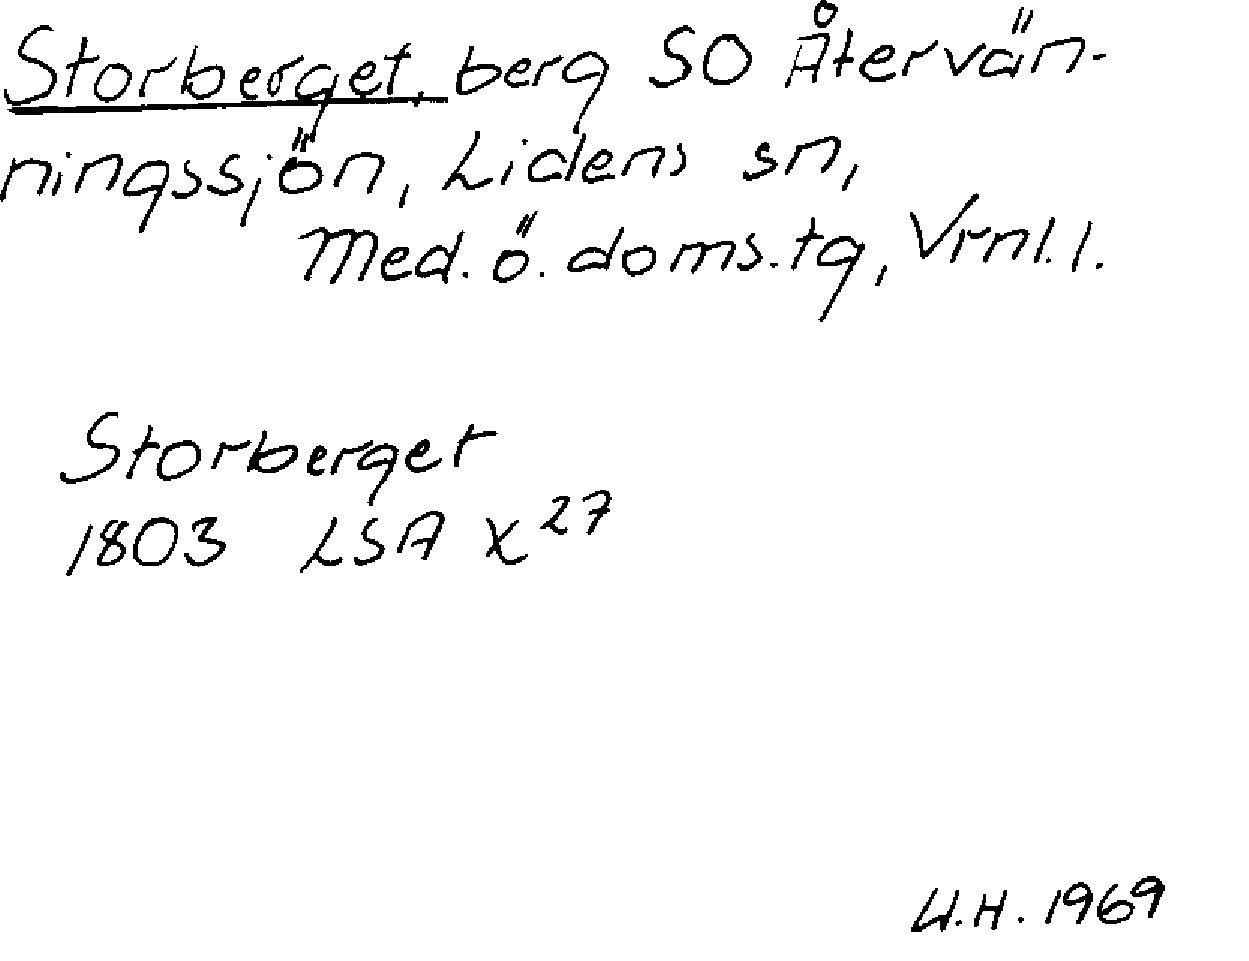 Storberget, berg SO Återvän-
ningssjön, Lidens sn,
Med. ö. doms.tg, Vrnl. l.
Storberget
1803 LSA X 27
U.H. 1969